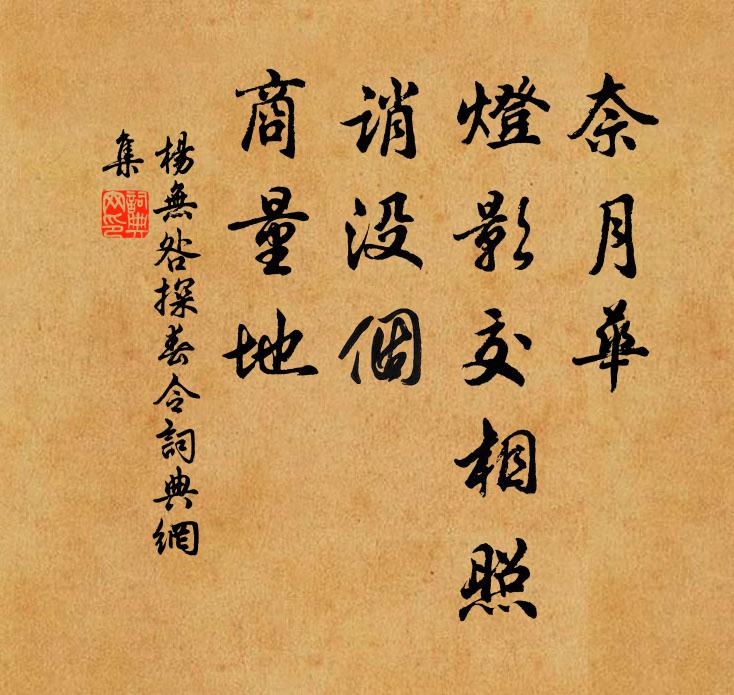 奈月華
燈影交相照
誚没個
商量地
楊無咎探春令詞典網
集
詞典
网印